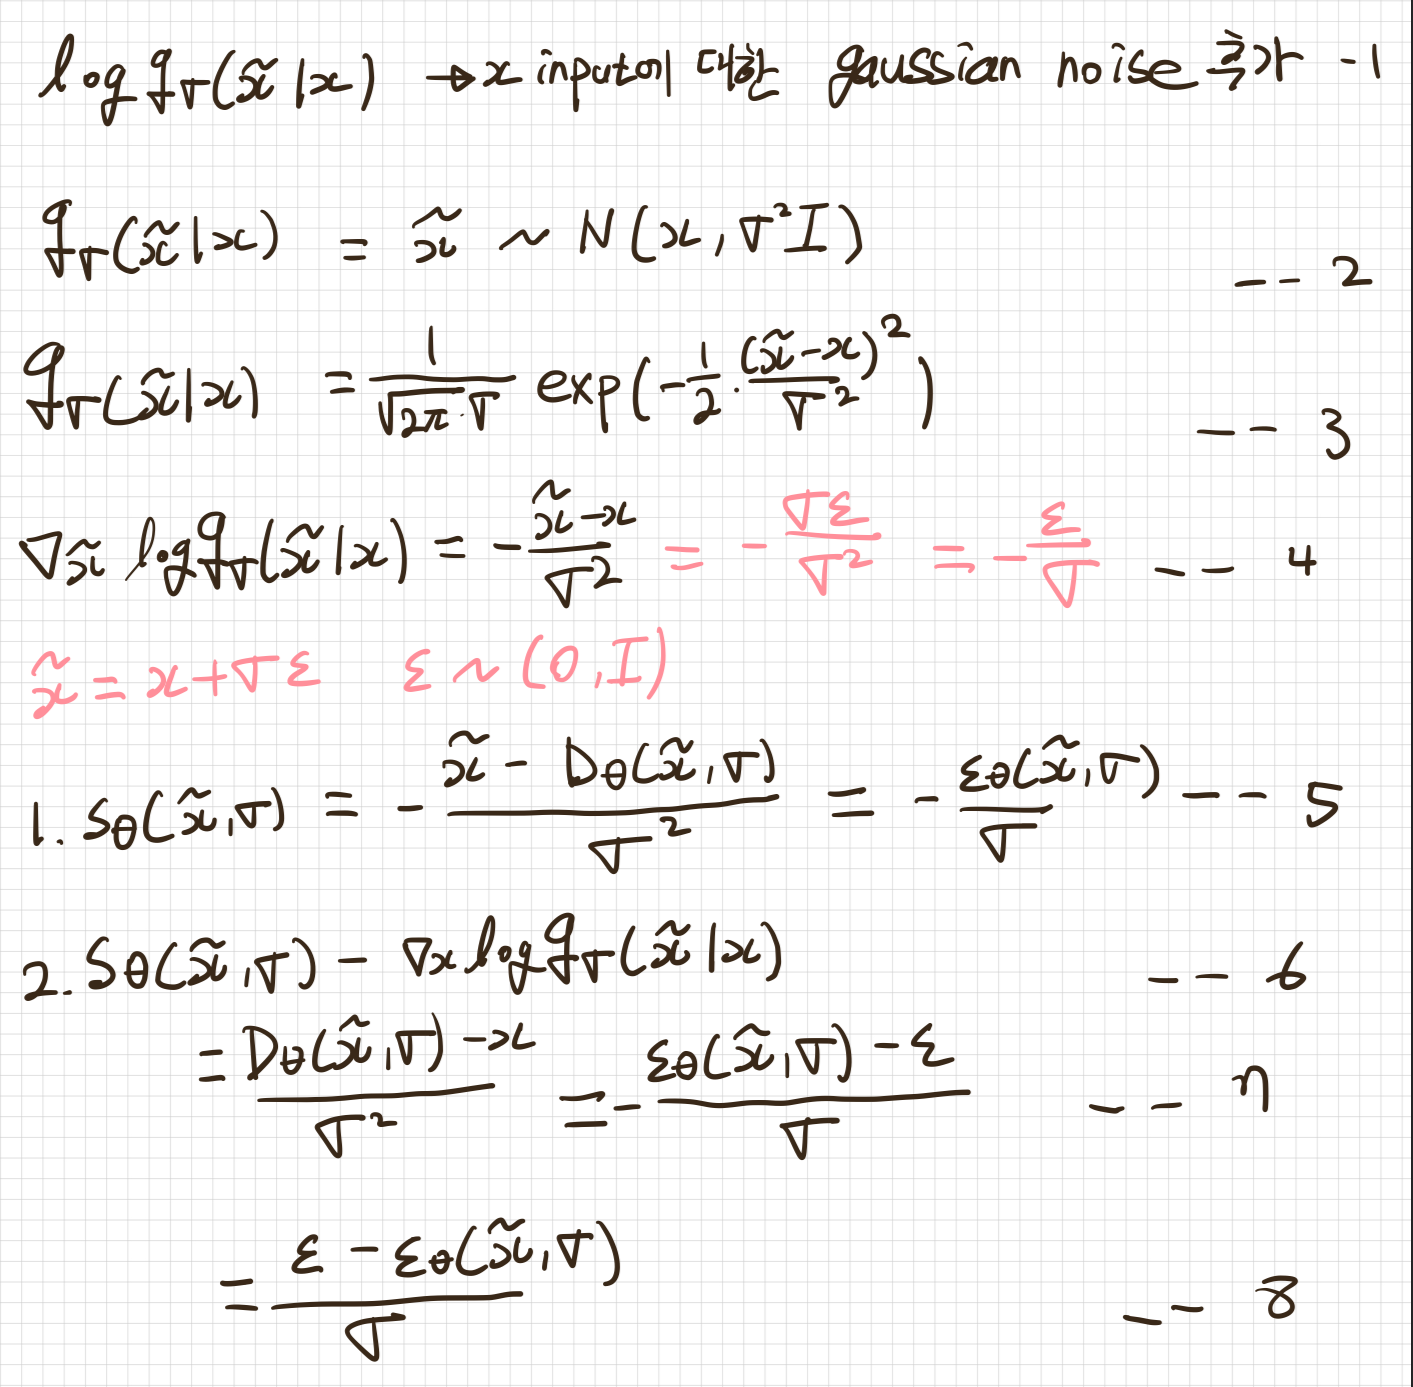 log q_σ(x̃|x) → x input에 대한 gaussian noise 추가 - 1
q_σ(x̃|x) = x̃ ~ N(x, σ²I) --- 2
q_σ(x̃|x) = 1/(√2π·σ) exp(-1/2 · (x̃-x)²/σ²) -- 3
∇_x̃ log q_σ(x̃|x) = - (x̃-x)/σ² = - σε/σ² = - ε/σ -- 4
x̃ = x+σε ε ~ (0, I)
1. S_θ(x̃,σ) = - (x̃ - D_θ(x̃,σ))/σ² = - ε_θ(x̃,σ)/σ --- 5
2. S_θ(x̃,σ) - ∇_x log q_σ(x̃|x) -- 6
= (D_θ(x̃,σ) - x)/σ² = - (ε_θ(x̃,σ) - ε)/σ -- 7
= (ε - ε_θ(x̃,σ))/σ -- 8